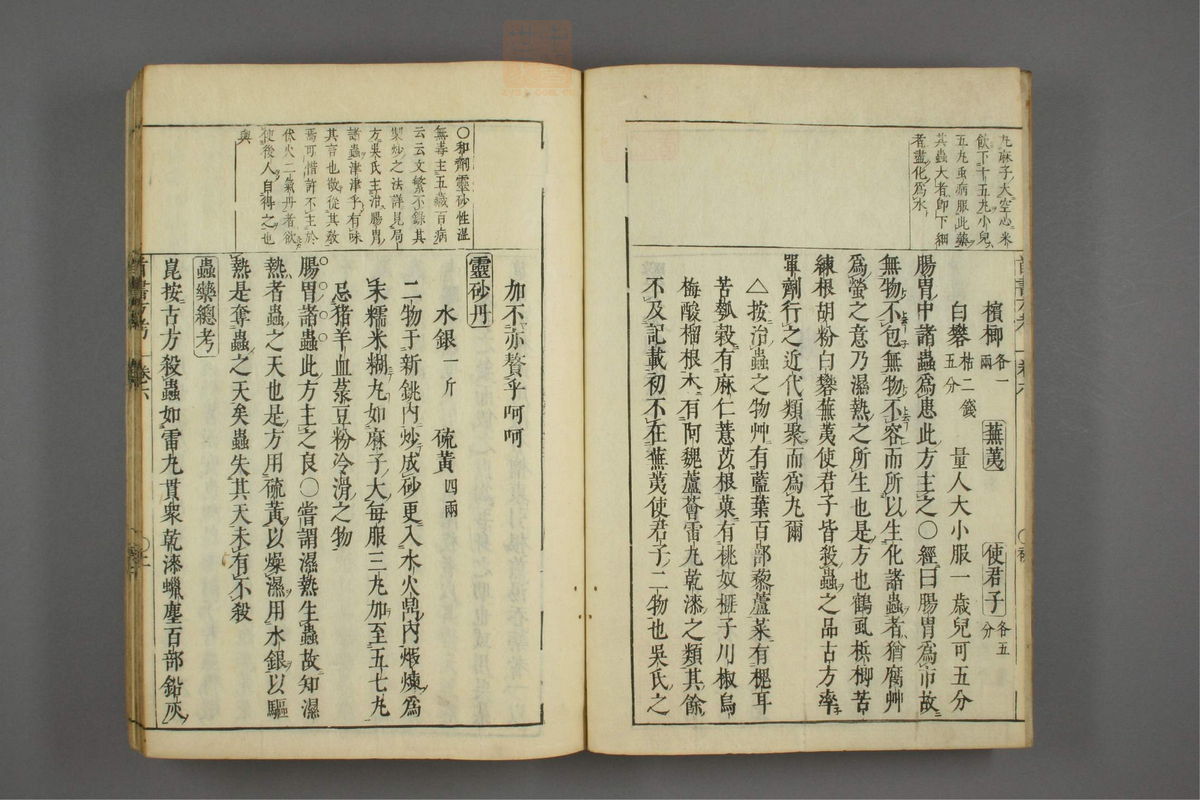 丸麻子大空心米
飲下十五丸小兒
五丸虫病服此藥
其蟲大者即下細
者盡化為水
檳榔各一兩 蕪荑 使君子各五分
白礬枯二箋五分 量人大小服一歲兒可五分
腸胃中諸蟲為患此方主之○經曰腸胃為市故
無物不包無物不容而所以生化諸蟲者猶腐艸
為螢之意乃濕熱之所生也是方也鶴虱檳榔苦
練根胡粉白礬蕪荑使君子皆殺蟲之品古方率
單劑行之近代類聚而為丸爾
△按治蟲之物艸有藍葉百部藜蘆菜有槐耳
苦瓠穀有麻仁薏苡根菓有桃奴榧子川椒烏
梅酸榴根木有阿魏蘆薈雷丸乾漆之類其餘
不及記載初不在蕪荑使君子二物也吳氏之
○和劑靈砂性溫
無毒主五臟百病
云云文繁不錄其
製炒之法詳見局
方吳氏主治腸胃
諸蟲津津乎有味
其言也敬從其教
焉可惜許不主於
伏火二氣丹者欲
使後人自得之也
與
加不亦贅乎呵呵
靈砂丹
水銀一斤 硫黃四兩
二物于新銚內炒成砂更入水火鼎內煆煉為
末糯米糊丸如麻子大每服三丸加至五七丸
忌猪羊血菉豆粉冷滑之物
腸胃諸蟲此方主之良○嘗謂濕熱生蟲故知濕
熱者蟲之天也是方用硫黃以燥濕用水銀以驅
熱是奪蟲之天矣蟲失其天未有不殺
蟲藥總考
崑按古方殺蟲如雷丸貫衆乾漆蠟塵百部鉛灰